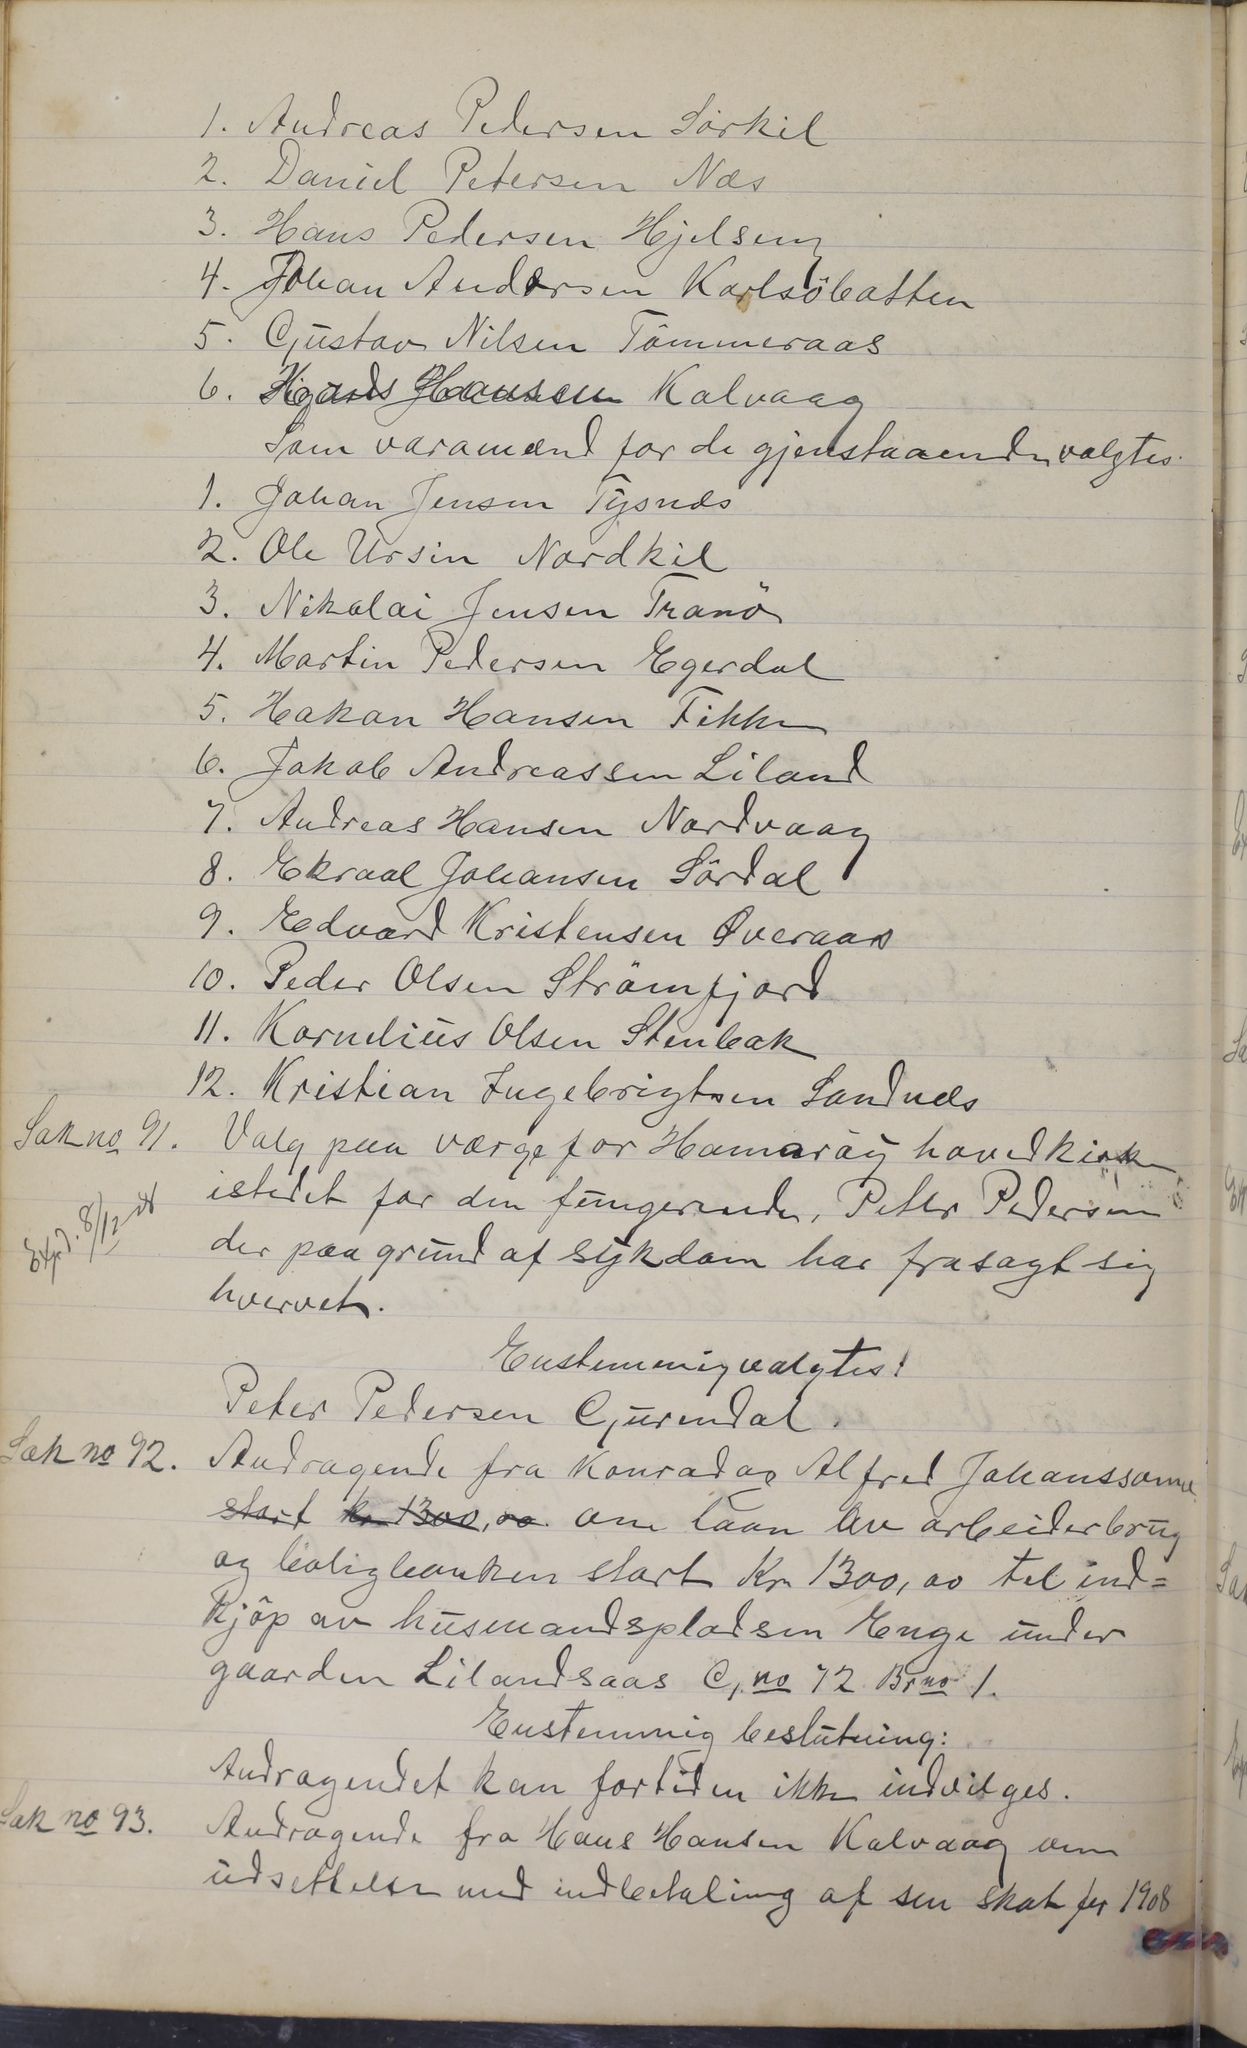 1. Andreas Pedersen Sörkil
2. Daniel Petersen Næs
3. Hans Pedersen Hjelseng
4. Johan Andersen Karlsöbatten
5. Gustav Nilsen Tömmeraas
6. Hans Hansen Kalvaag
Som varamænd for de gjenstaaende valgtes.
1. Johan Jensen Tysnæs
2. Ole Ursin Nordkil
3. Nikolai Jensen Tranö
4. Martin Pedersen Egerdal
5. Hakon Hansen Fikke
6. Jakob Andreassen Liland
7. Andreas Hansen Nordvaag
8. Ekraal Johansen Sördal
9. Edvard Kristensen Øveraas
10. Peder Olsen Strömfjord
11. Kornelius Olsen Stenbak
12. Kristian Ingebrigtsen Sandnæs
Sak no 91. Valg paa værge for Hamaröy hovedkirke
istedet for den fungerende, Petter Pedersen
Exp. 8/12
der paa grund af sykdom har frasagt sig
hvervet.
Enstemmig valgtes:
Peter Pedersen Gjurendal.
Sak no 92. Andragende fra Konradas Alfred Johanssome
stort kr 1300,00 om laan av arbeiderbrug
og boligbanken stort Kr. 1300,00 til ind=
kjöp av husmandspladsen Enge under
gaarden Lilandsaas G. no 72 Br no 1.
Enstemmig beslutning:
Andragendet kan fortiden ikke indvilges.
Sak no 93. Andragende fra Hans Hansen Kalvaag om
udsettelse med indbetaling af sin skat for 1908